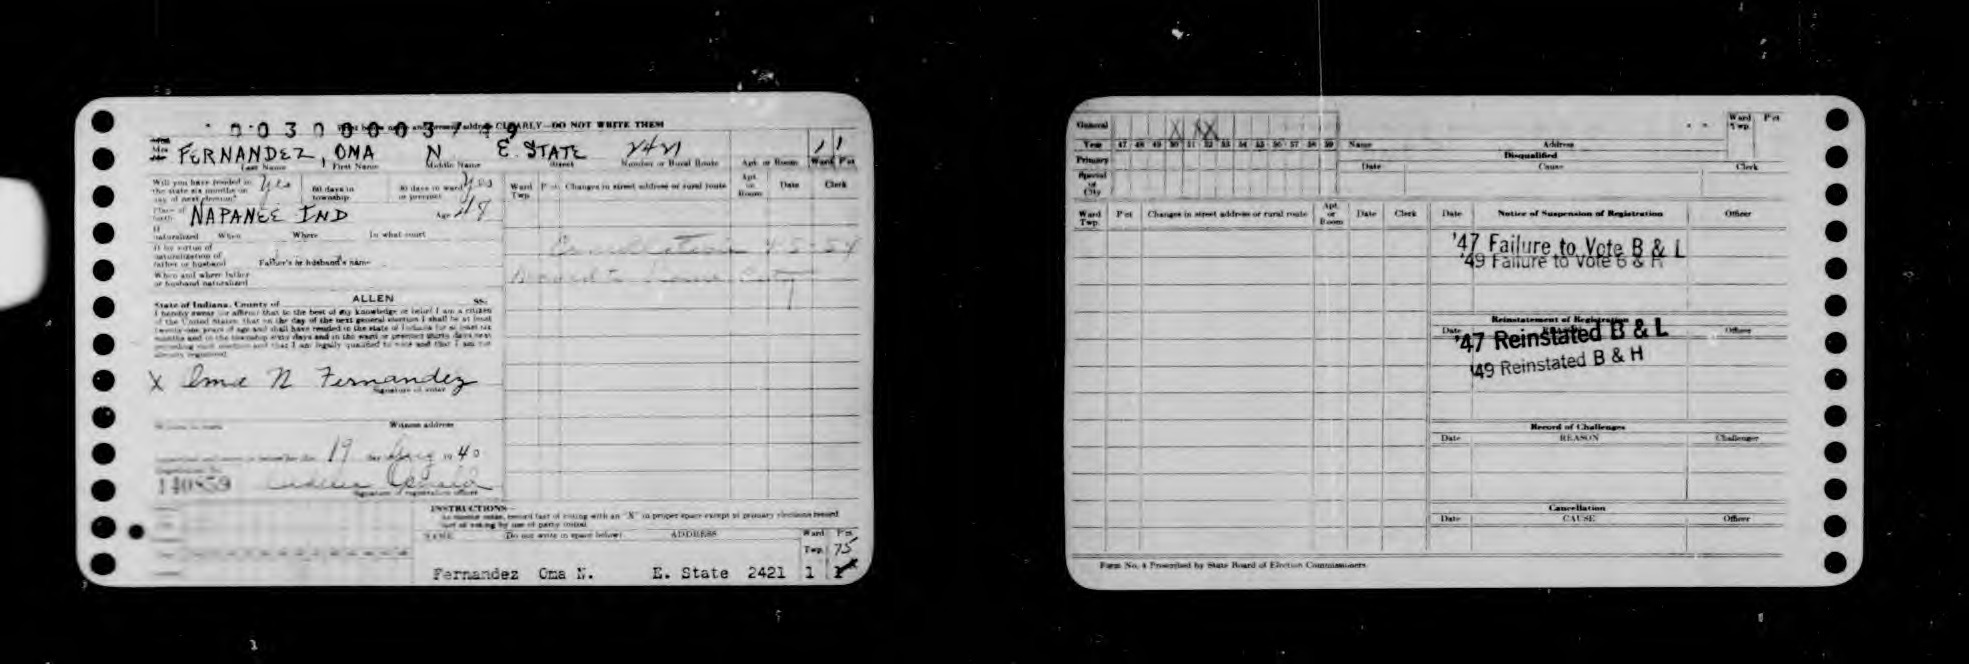 0 0 3 0 0 0 0 3 7 4 9
CLEARLY—DO NOT WRITE THEM
FERNANDEZ OMA N. E. STATE 2421 1 1
Last Name First Name Middle Name Street Number or Rural Route Apt. or Room Ward Pct
Will you have resided in the state six months on day of next election? Yes 60 days in township 30 days in ward or precinct Yes
Place of birth NAPANEE IND Age 48
If naturalized When Where In what court
If by virtue of naturalization of father or husband Father's or husband's name
When and where father or husband naturalized
State of Indiana, County of ALLEN SS.
I hereby swear (or affirm) that to the best of my knowledge or belief I am a citizen
of the United States; that on the day of the next general election I shall be at least
twenty-one years of age and shall have resided in the state of Indiana for at least six
months and in the township sixty days and in the ward or precinct thirty days next
preceding such election and that I am legally qualified to vote and that I am not
already registered.
X Oma N Fernandez
Signature of voter
Witness address
19 day 19 40
Registration No.
140859
Signature of registration officer
Ward Twp. Pct Changes in street address or rural route Apt. or Room Date Clerk
Cancellation 4-5-54
INSTRUCTIONS—
record fact of voting with an "X" in proper space except at primary elections record
fact of voting by use of party initial
NAME (Do not write in space below) ADDRESS Ward Pct
Twp. 75
Fernandez Oma N. E. State 2421 1 1
General X X X
Year 47 48 49 50 51 52 53 54 55 56 57 58 59
Primary
Special or City
Ward Twp. Pct
Name Address
Disqualified
Date Cause Clerk
Ward Twp. Pct Changes in street address or rural route Apt. or Room Date Clerk
Date Notice of Suspension of Registration Officer
'47 Failure to Vote B & L
'49 Failure to Vote B & H
Reinstatement of Registration
Date Officer
'47 Reinstated B & L
'49 Reinstated B & H
Record of Challenges
Date REASON Challenger
Cancellation
Date CAUSE Officer
Form No. 4 Prescribed by State Board of Election Commissioners